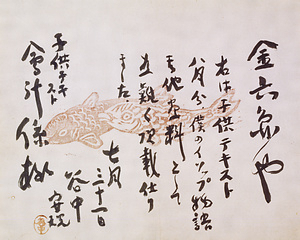 金六円也
右は子供テキスト
八月分、僕のイソップ物語
其他画料として
有難く頂戴仕り
ました
七月
三十一日
谷中
安規
子供テキスト
會計係様